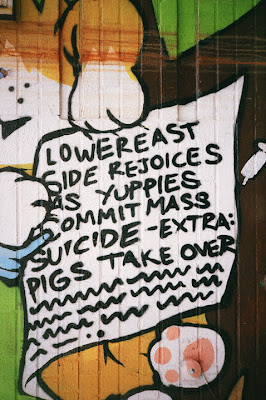 LOWEREAST
SIDE REJOICES
AS YUPPIES
COMMIT MASS
SUICIDE -EXTRA:
PIGS TAKE OVER